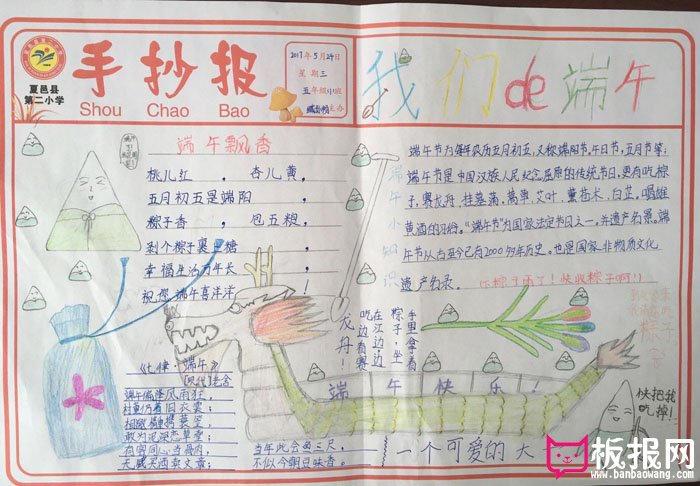 夏邑县
第二小学
手抄报
Shou Chao Bao
2017年5月24日
星期三
我们de端午
端午飘香
桃儿红,杏儿黄,
五月初五是端阳
粽子香,包五粮,
剥个粽子裹上糖
幸福生活万年长
祝您端午喜洋洋!
端午小知识
端午节为每年农历五月初五,又称端阳节,午日节,五月节等;
端午节是中国汉族人民纪念屈原的传统节日,更有吃粽
子,赛龙舟,挂菖蒲,蒿草,艾叶,薰苍术,白芷,喝雄
黄酒的习俗。“端午节”为国家法定节日之一,并遗产名录。端
午节从古至今已有2000多年历史。也是国家非物质文化
遗产名录。
下粽子雨了!快收粽子啊!!
龙舟!
手里拿着
粽子,坐
在江边,
吃边看赛
端午快乐!
快把我
吃掉!
《七律·端午》
【现代】老舍
端午偏逢风雨狂,
村童仍着旧衣裳;
相邀情重携蓑笠,
敢为泥深恋草堂;
有客同心当骨肉,
无钱买酒卖文章;
当年此会鱼三尺,
不似今朝豆味香。
一个可爱的大
板报网
www.banbaowang.com